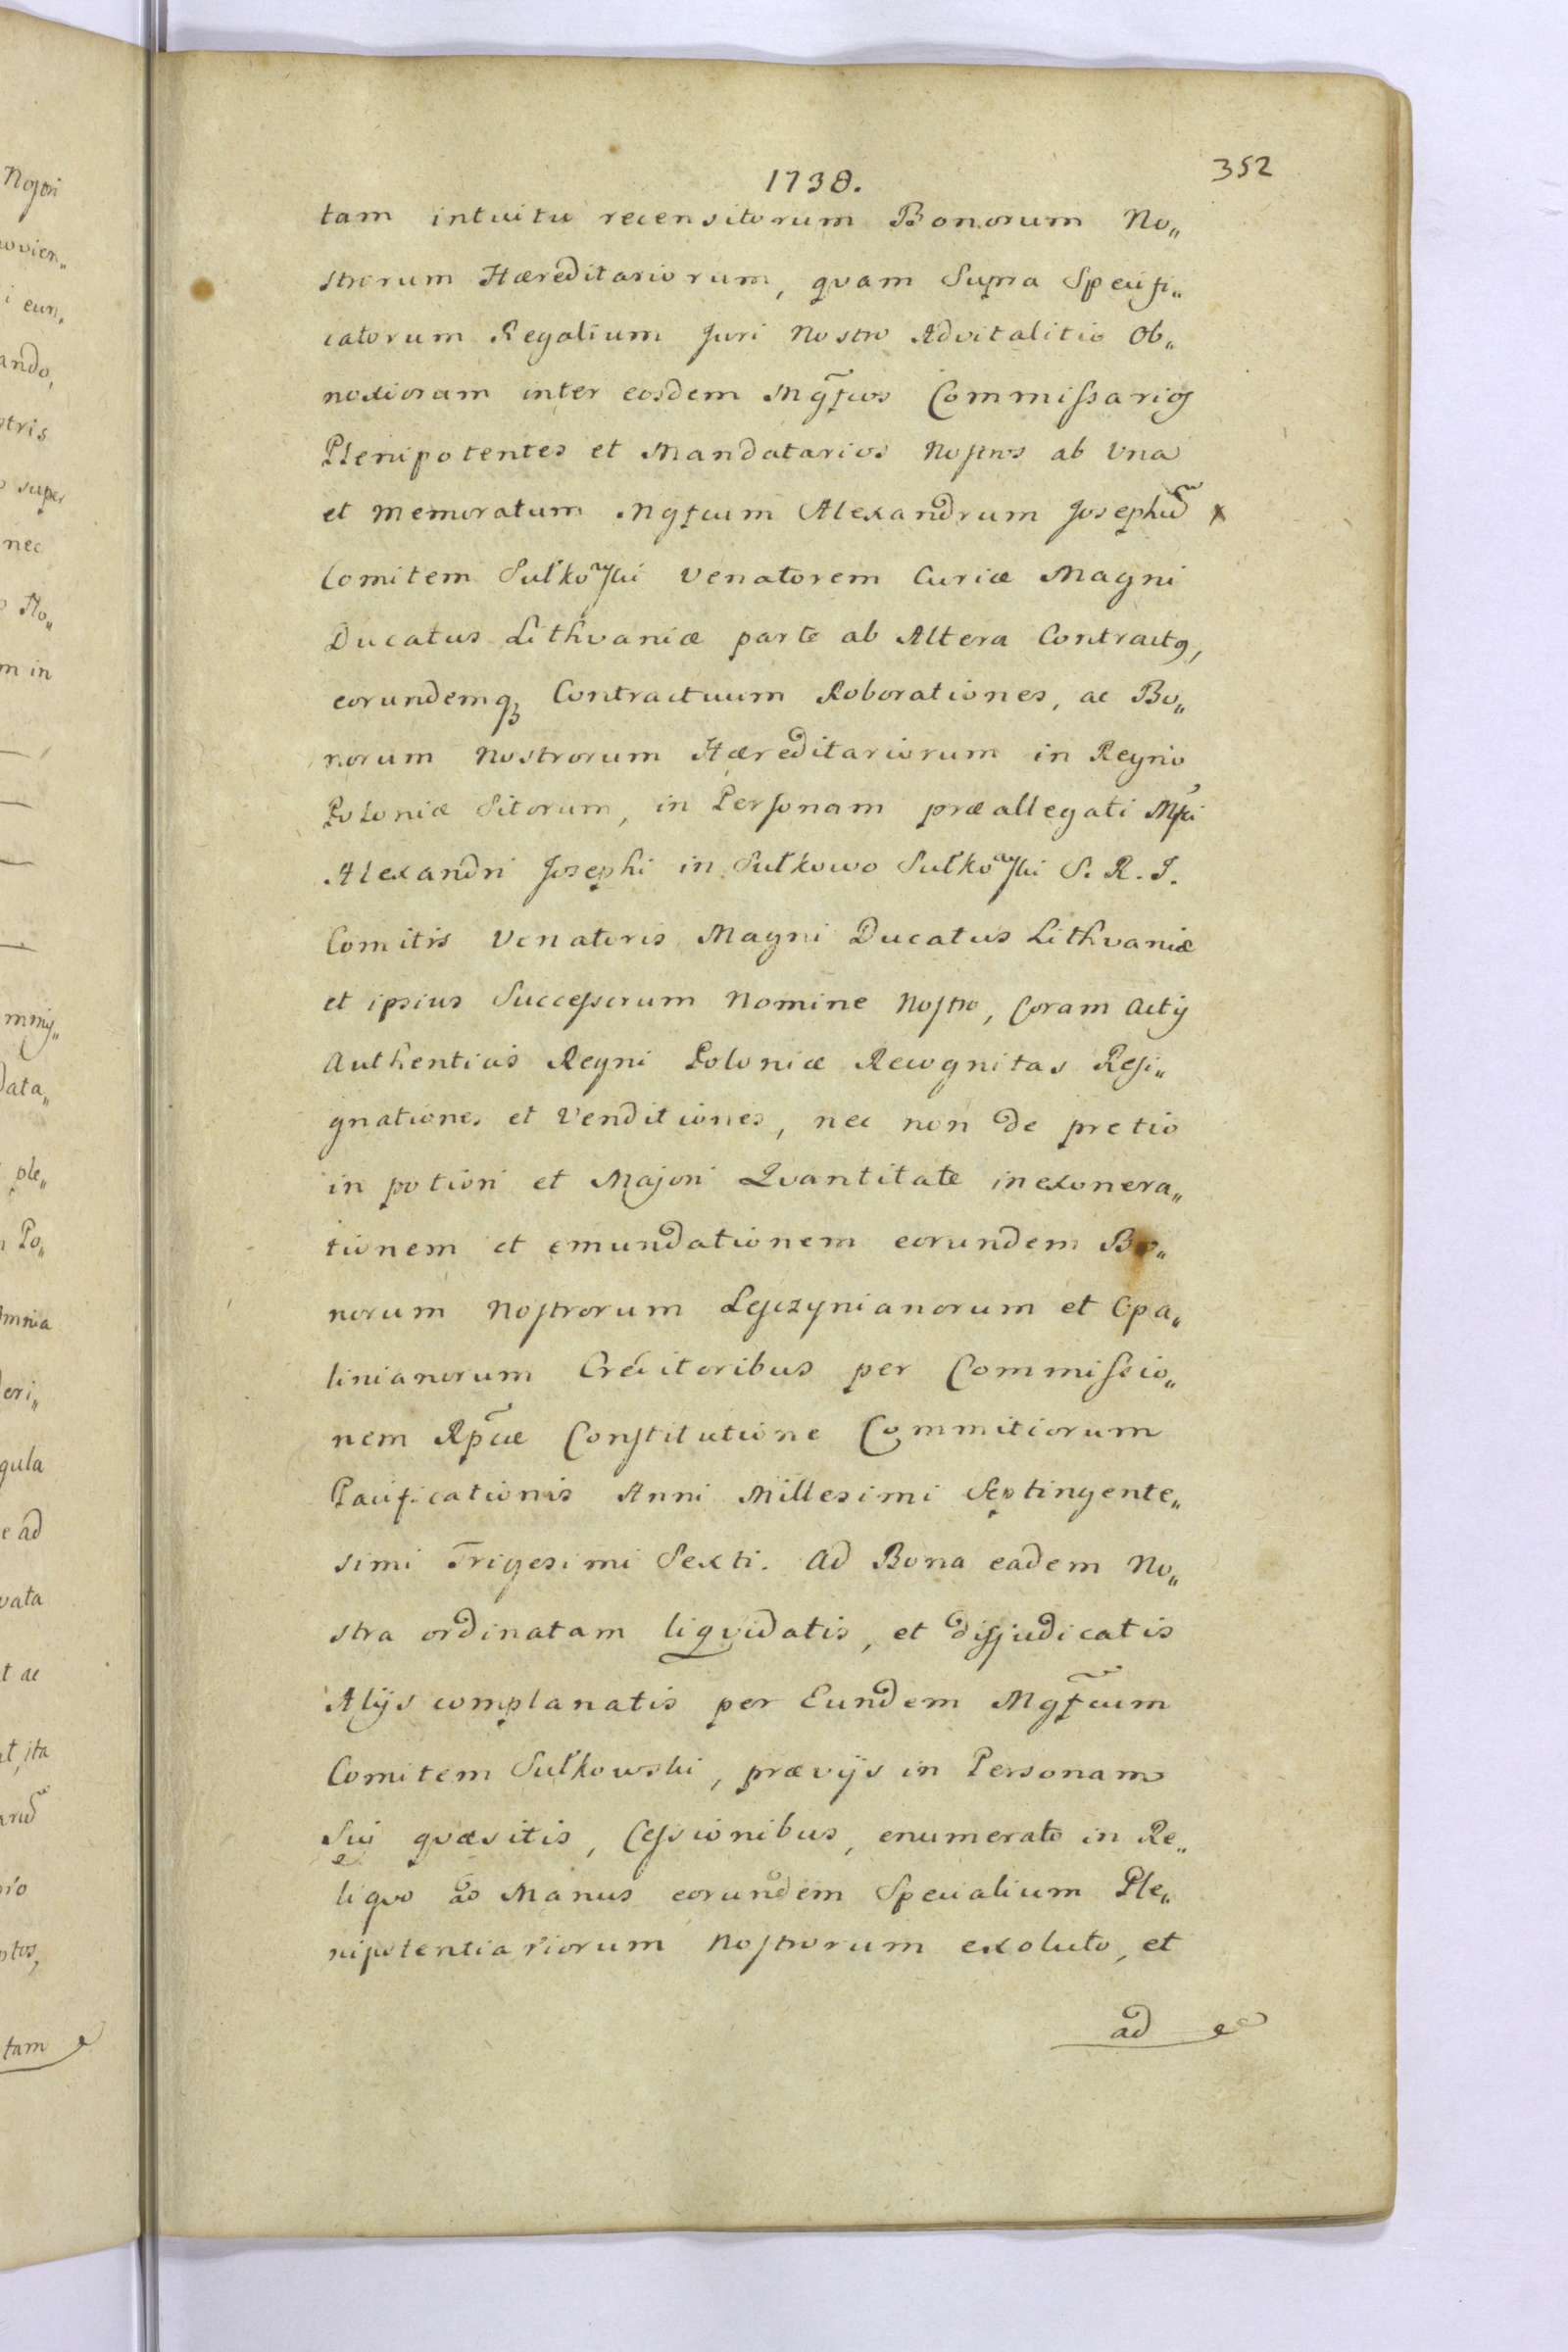 1738.
352
tam intuitu recensitorum Bonorum No„
strorum Hæreditariorum, quam Supra Specifi„
catorum Regalium Juri Nostro Advitalitio Ob„
noxioram inter eosdem Mg̃fcos Commissarios
Plenipotentes et Mandatarios Nostros ab Una
et memoratum Mgfcum Alexandrum Josephũ
Comitem Sułkowski Venatorem Curiæ Magni
Ducatus Lithvaniæ parte ab Altera Contractus,
eorundemq3 Contractuum Roborationes, ac Bo„
norum Nostrorum Hæreditariorum in Regno
Poloniæ Sitorum, in Personam præallegati Mfci
Alexandri Josephi in Sułkowo Sułkowski S. R. J.
Comitis Venatoris Magni Ducatus Lithvaniæ
et ipsius Successorum Nomine Nostro, Coram Actis
Authenticis Regni Poloniæ Recognitas Resi„
gnationes et Venditiones, nec non de pretio
in potiori et Majori Quantitate in exonera„
tionem et emundationem eorundem Bo„
norum Nostrorum Lesczynianorum et Opa„
linianorum Creditoribus per Commissio„
nem Rp̃cæ Constitutione Commitiorum
Pacificationis Anni Millesimi Septingente„
simi Trigesimi Sexti. Ad Bona eadem No„
stra ordinatam liquidatis, et disjudicatis
Alijs complanatis per Eundem Mg̃fcum
Comitem Sułkowski, prævijs in Personam
Sui quæsitis, Cessionibus, enumerato in Re„
liquo ad Manus eorundem Specialium Ple„
nipotentiariorum Nostrorum exoluto, et
ad
Nostri
ando,
stris
super
nec
Ho„
m in
data„
ple„
Po„
omnia
gula
e ad
vata
t ac
ita
tam